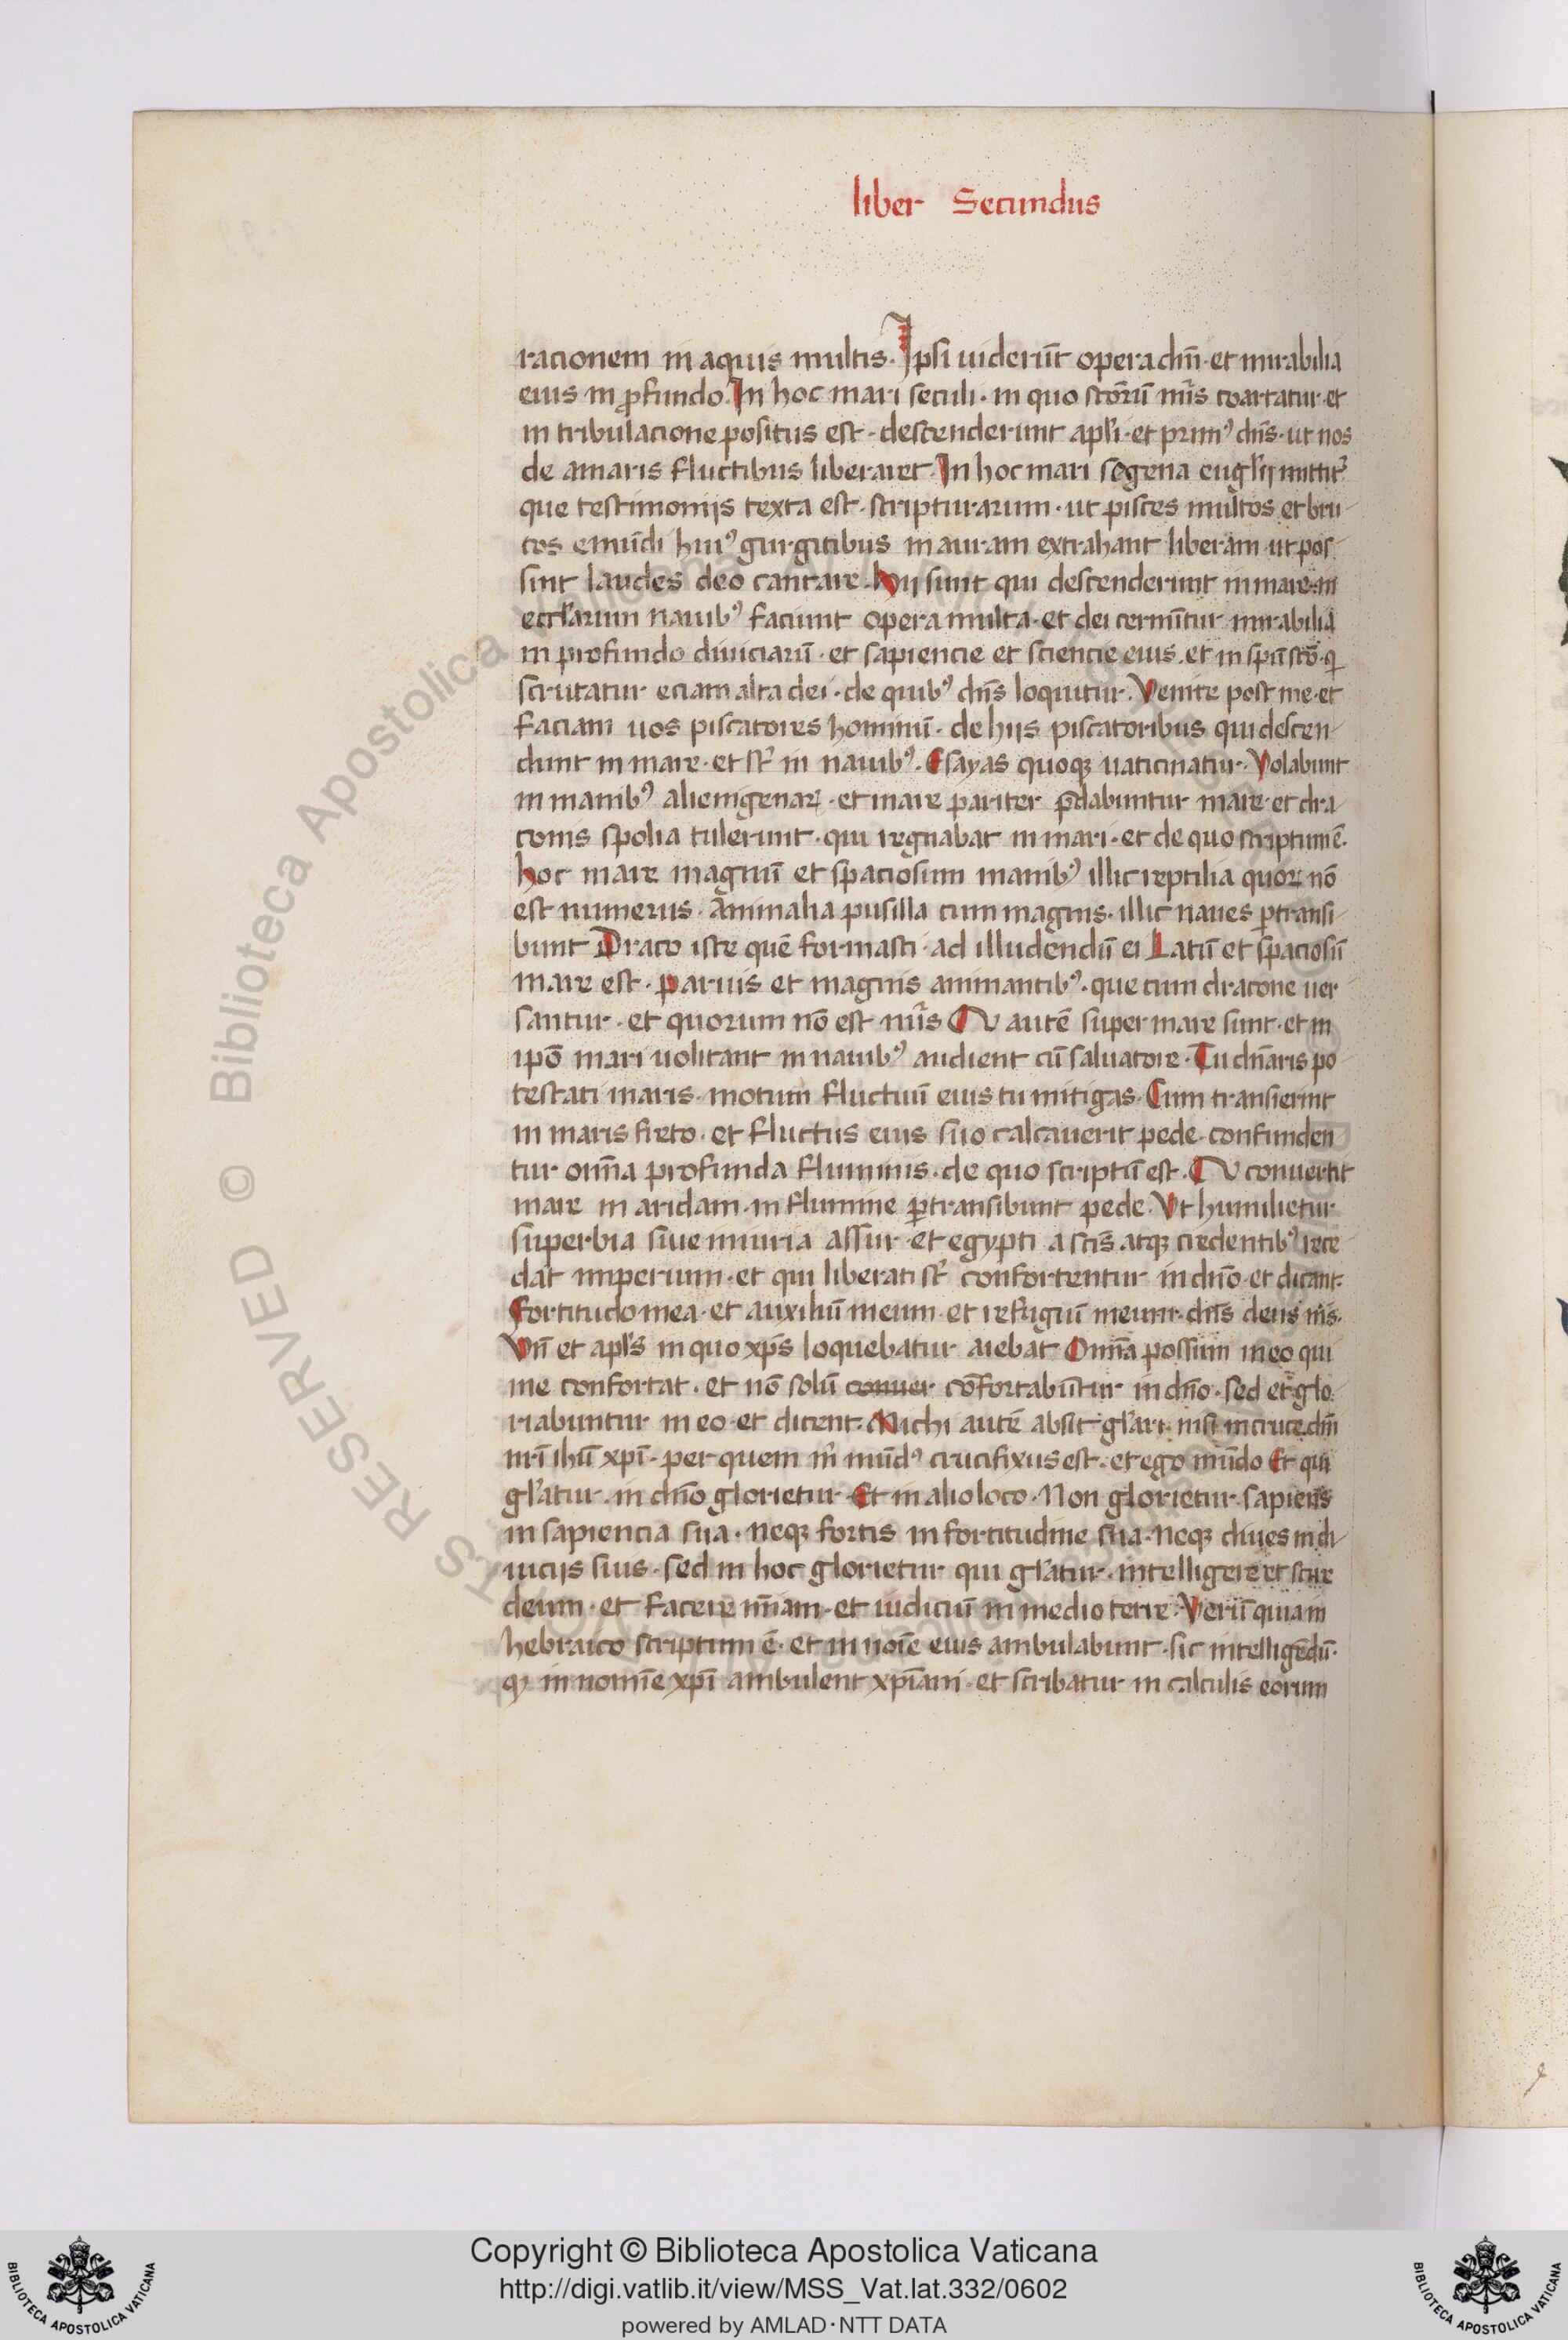 liber Secundus
racionem in aquis multis. Ipsi uiderūt opera dnī. et mirabilia
eius in ꝓfundo. In hoc mari seculi. in quo scōrū nr̄is coartatur. et
in tribulacione positus est. descenderunt apłi. et primꝰ dn̄s. ut nos
de amaris fluctibus liberaret. In hoc mari segena euglīj mittit᷑
que testimonijs texta est. scripturarum. ut pisces multos et bru-
tos e mūdi huiꝰ gurgitibus in auram extrahant liberam. ut pos-
sint laudes deo cantare. hij sunt qui descenderunt in mare. in
eccłarum nauibꝰ faciunt opera multa. et dei cernūtur mirabilia
in profundo diuiciarū. et sapiencie et sciencie eius. et in spū scō. q̄
scrutatur eciam alta dei. de quibꝰ dn̄s loquitur. Venite post me. et
faciam uos piscatores hominū. de hijs piscatoribus qui descen-
dunt in mare. et st̄ in nauibꝰ. Esayas quoqꝫ uaticinatur. Volabunt
in manibꝰ alienigenaꝝ. et mare pariter p̄dabuntur mare. et dra-
conis spolia tulerunt. qui regnabat in mari. et de quo scriptum ē.
hoc mare magnū et spaciosum manibꝰ illic reptilia quoꝝ nō
est numerus. Animalia pusilla cum magnis. illic naues ꝑtransi-
bunt Draco iste quē formasti. ad illudendū ei Latū et spaciosū
mare est. paruis et magnis animantibꝰ. que cum dracone uer
santur. et quorum nō est nūs Qui autē super mare sunt. et in
ipō mari uolitant in nauibꝰ audient cū saluatore. Tu dn̄aris po-
testati maris. motum fluctuū eius tu mitigas. Cum transierint
in maris freto. et fluctus eius suo calcauerit pede. confunden
tur omn̄a profunda fluminis. de quo scriptū est. Qui conuertit
mare in aridam. in flumine ꝑtransibunt pede. Vt humilietur
superbia siue iniuria assur. et egypti a scīs atqꝫ credentibꝰ rece
dat imperium. et qui liberati st̄ confortentur in dn̄o. et dicant.
fortitudo mea. et auxiliū meum. et refugiū meum. dn̄s deus nr̄s.
Vn̄ et apłs in quo xp̄s loquebatur aiebat Omn̄a possum in eo qui
me confortat. et nō solū conuer cōfortabūtur in dn̄o. sed et glo-
riabuntur in eo. et dicent. Michi autē absit głari. nisi in cruce dn̄i
nr̄i ihū xp̄i. per quem m̄ mūdꝰ crucifixus est. et ego mūdo Et qui
głatur. in dn̄o glorietur. Et in alio loco. Non glorietur sapiens
in sapiencia sua. neqꝫ fortis in fortitudine sua. neqꝫ diues in di-
uicijs suis. sed in hoc glorietur qui głatur. intelligere et scire
deum. et facere mīam. et iudiciū in medio terre. Verū quia in
hebraico scriptum ē. et in noīe eius ambulabunt. sic intelligēdū.
ꝙ in nomīe xp̄i ambulent xp̄iani. et scribatur in calculis eorum
Copyright © Biblioteca Apostolica Vaticana
http://digi.vatlib.it/view/MSS_Vat.lat.332/0602
powered by AMLAD·NTT DATA